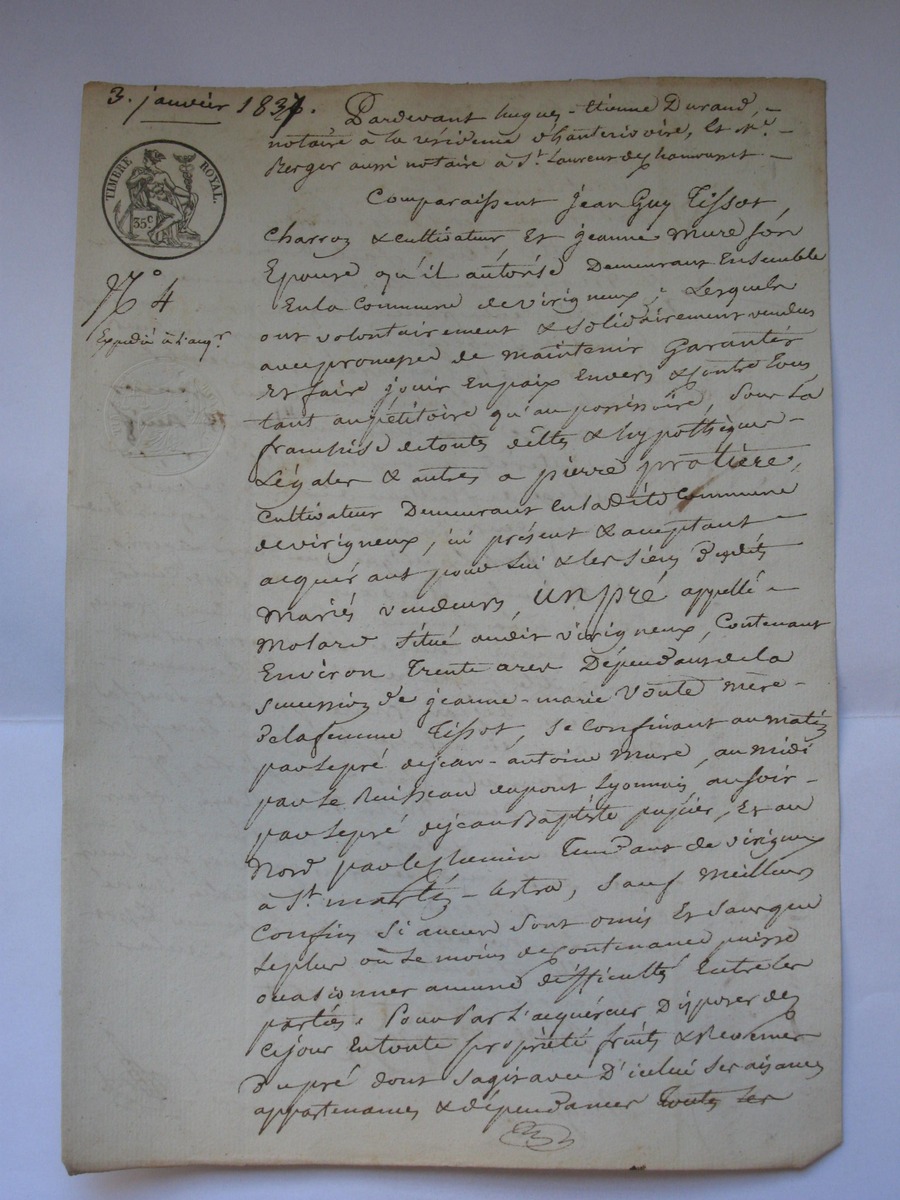 3. janvier 1837.
Pardevant hugues-étienne Durand,
notaire à la résidence chanterivoire, Et Mr.
Berger aussi notaire à St. Laurent de chamousset
TIMBRE ROYAL.
35c
No 4
Expédié à l'acqr.
Comparaissent jean Guy Tissot,
Charron & cultivateur, Et jeanne mure son
Epouse qu'il autorise Demeurant Ensemble
En la Commune de virigneux ; Lesquels
ont volontairement & solidairement vendus
avec promesse de maintenir Garantir
Et faire jouir En paix Envers & contre Tous
tant au pétitoire qu'au possessoire, sous La
franchise de toutes dettes & hypothèques
Légales & autres a pierre protière,
Cultivateur Demeurant En la dite Commune
de virigneux, ici présent & acceptant
acquérant pour Lui & les siens Desdits
mariés vendeurs, un pré appellé
Molard situé audit virigneux, Contenant
Environ Trente ares Dépendant de la
succession de jeanne-marie Vouté mère
De la femme Tissot, se Confinant au matin
par Le pré de jean-antoine mure, au midi
par Le Ruisseau du pont Lyonnais, au soir
par Le pré de jean Baptiste pupier, Et au
Nord par le chemin Tendant de virigneux
à St. martin-Lestra, sauf meilleurs
Confins si aucuns sont omis Et sans que
Le plus où Le moins de Contenance puisse
occasionner aucune difficultés Entre les
parties. Pour Par L'acquéreur Disposer des
Ce jour En toute propriété fruits & Revenus
Du pré dont s'agit avec D'icelui ses aisances
appartenances & dépendances toutes les